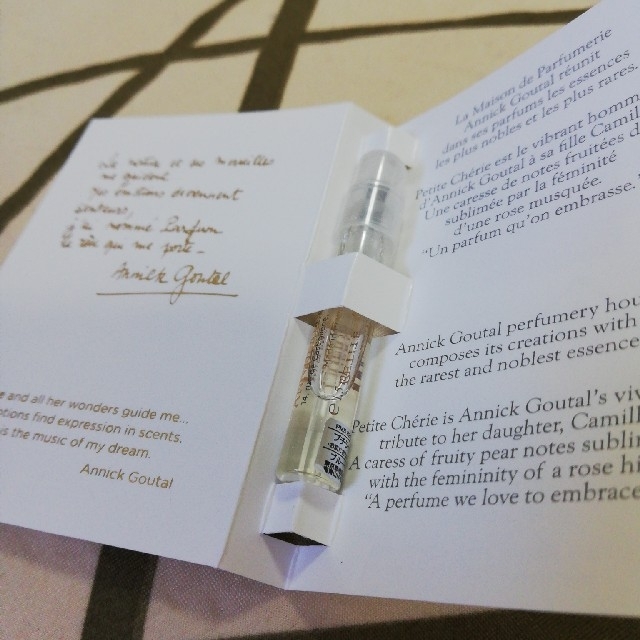 et ses merveilles
me guident
émotions deviennent
senteurs,
j'ai nommé Parfum
que me porte
Annick Goutal
and all her wonders guide me...
find expression in scents.
is the music of my dream.
Annick Goutal
La Maison de Parfumerie
Annick Goutal réunit
dans ses parfums les essences
les plus nobles et les plus rares.
Petite Chérie est le vibrant
d'Annick Goutal à sa fille
Une caresse de notes fruitées
sublimée par la féminité
d'une rose musquée.
"Un parfum qu'on embrasse.
Annick Goutal perfumery
composes its creations with
the rarest and noblest
Petite Chérie is Annick Goutal's
tribute to her daughter,
A caress of fruity pear notes
with the femininity of a rose
"A perfume we love to embrace